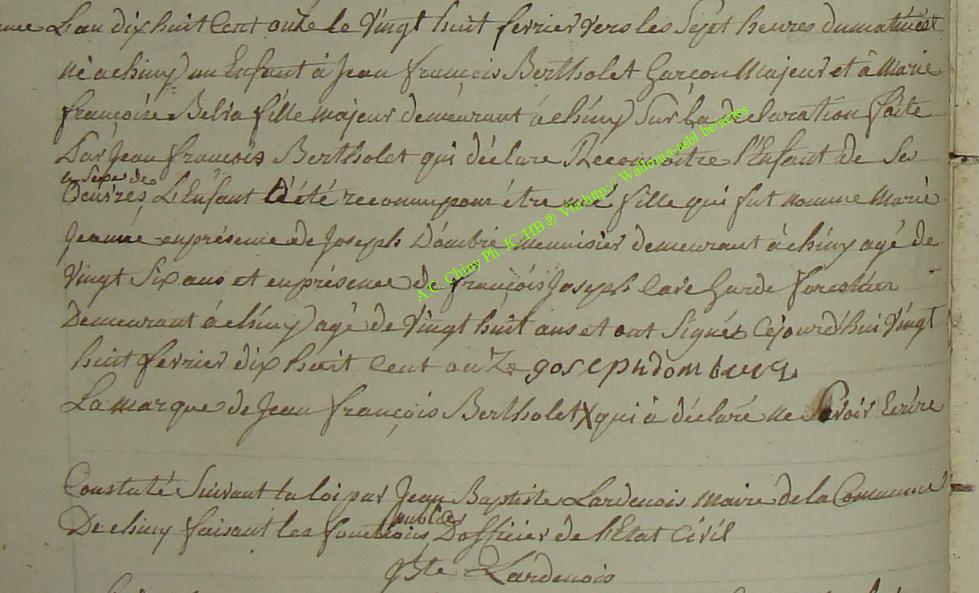 L'an dix huit Cent onze le Vingt huit fevrier vers les Sept heures dumatin est
né a chiny un Enfant à Jean françois Bertholet Garçon Majeur et à Marie
françoise Belva fille majeur demeurant à chiny Sur La declaration faite
Par Jean françois Bertholet qui déclare Reconnoitre l'Enfant de Se
Oeuvres L'Enfant à été reconnu pour être une fille qui fut nommé Marie
Jeanne en présence de Joseph Dombré meunisier demeurant à chiny agé de
Vingt Six ans et en présence de françois Joseph Garde forestier
Demeurant à chiny agé de Vingt huit ans et ont Signés Cejourd'hui Vingt
huit fevrier dix huit Cent onze joseph
La marque de Jean françois Bertholet X qui à déclaré ne Savoir Ecrire
Constaté Suivant la loi par Jean Baptiste Lardenois maire de la Commune
De chiny faisant les fonctions D'officier public de l'Etat Civil
Jbte Lardenois
A.C. Chiny Ph. JC.HB ® Via http:// Wallonia-asbl.be/actes